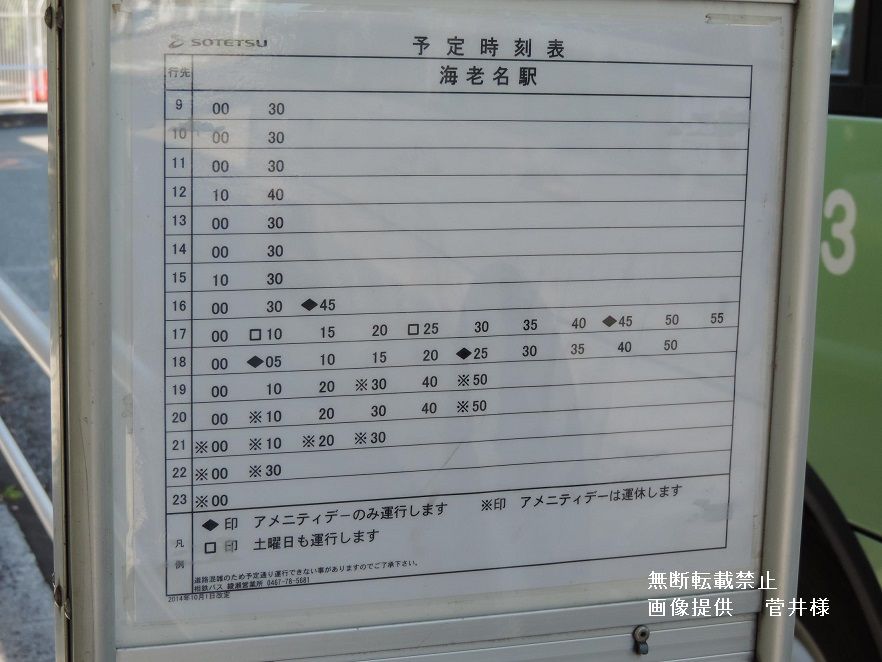 SOTETSU
予定時刻表
行先 海老名駅
9 00 30
10 00 30
11 00 30
12 10 40
13 00 30
14 00 30
15 10 30
16 00 30 ◆45
17 00 □10 15 20 □25 30 35 40 ◆45 50 55
18 00 ◆05 10 15 20 ◆25 30 35 40 50
19 00 10 20 ※30 40 ※50
20 00 ※10 20 30 40 ※50
21 ※00 ※10 ※20 ※30
22 ※00 ※30
23 ※00
凡例
◆印 アメニティデーのみ運行します ※印 アメニティデーは運休します
□印 土曜日も運行します
道路混雑のため予定通り運行できない事がありますのでご了承下さい。
相鉄バス 綾瀬営業所 0467-78-5681
2014年10月1日改定
3
無断転載禁止
画像提供 菅井様